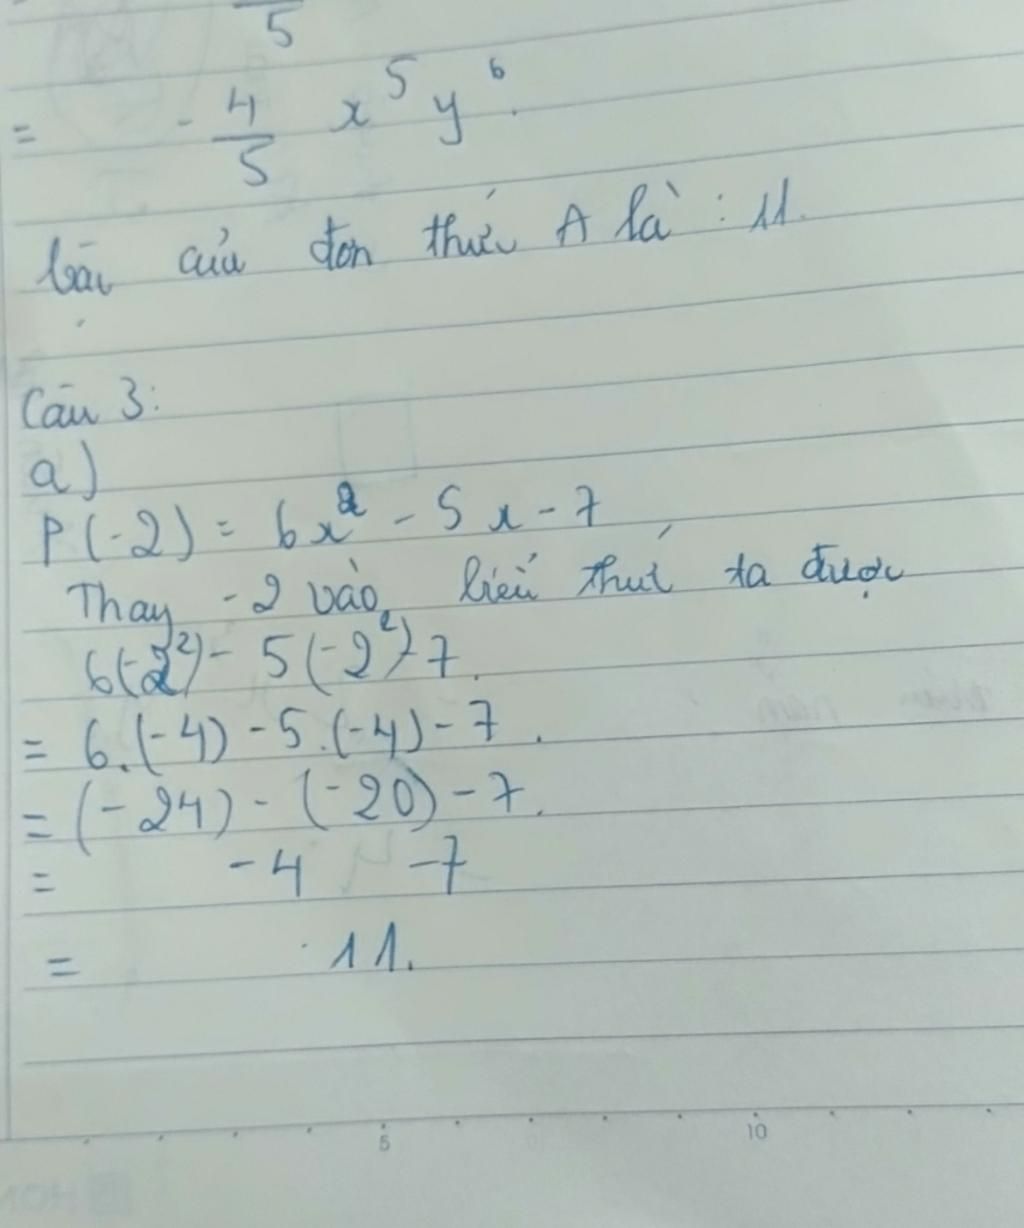 5
= -4/5 x⁵y⁶.
bậc của đơn thức A là : 11.
Câu 3:
a)
P(-2) = 6x² - 5x - 7
Thay -2 vào biểu thức ta được
6(-2²) - 5(-2²)-7.
= 6.(-4) - 5.(-4) - 7.
= (-24) - (-20) - 7.
= -4 -7
= -11.
5 10